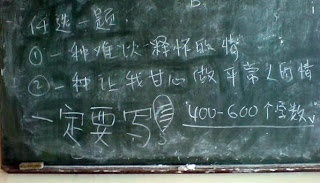 任选一题:
① 一种难以释怀的情
② 一种让我甘心做平常人的情
一定要写!
"400-600个字数"